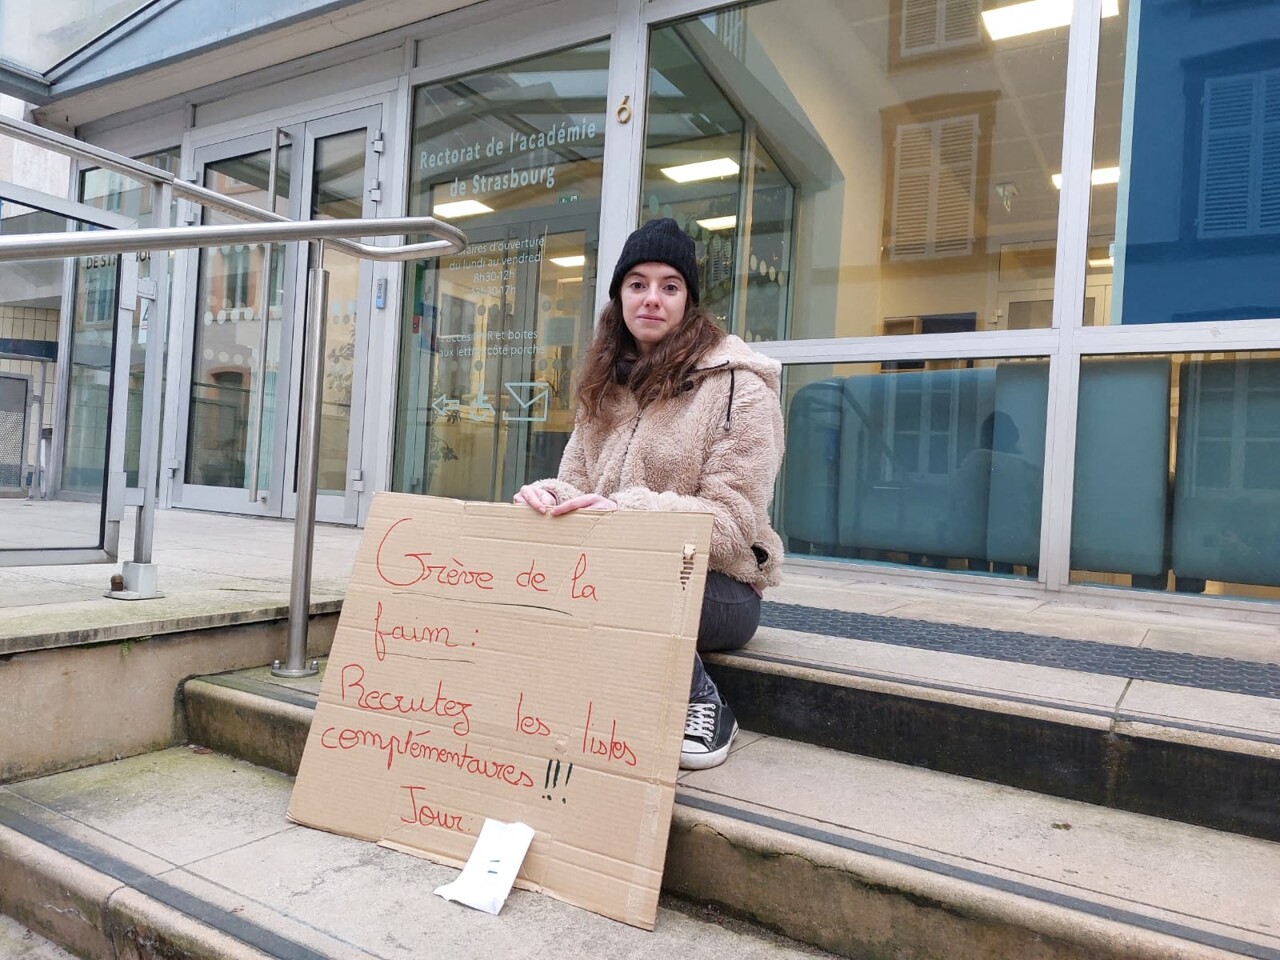 6
Rectorat de l'académie
de Strasbourg
d'ouverture
du lundi au vendredi
8h30-12h
et boîtes
aux lettres côté porche
Grève de la
faim :
Recrutez les listes
complémentaires !!!
Jour: